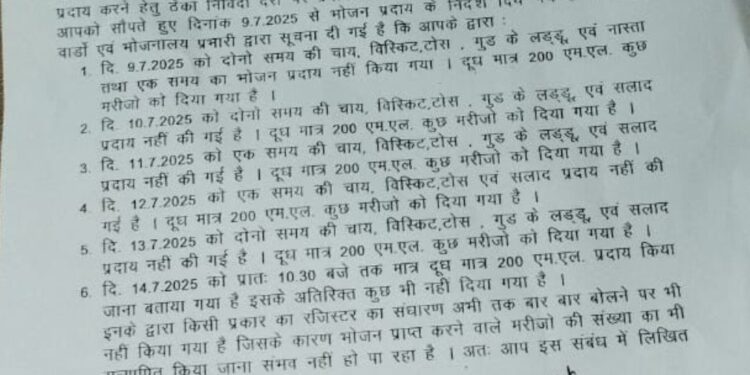 प्रदाय करने हेतु ठेका निविदा दरों पर
आपको सौपते हुए दिनांक 9.7.2025 से भोजन प्रदाय के निर्देश दिये
वार्डो एवं भोजनालय प्रभारी द्वारा सूचना दी गई है कि आपके द्वारा :
1. दि. 9.7.2025 को दोनो समय की चाय, विस्किट,टोस , गुड के लड्डू, एवं नास्ता
तथा एक समय का भोजन प्रदाय नहीं किया गया । दूध मात्र 200 एम.एल. कुछ
मरीजो को दिया गया है ।
2. दि. 10.7.2025 को दोनो समय की चाय, विस्किट,टोस , गुड के लड्डू, एवं सलाद
प्रदाय नहीं की गई है । दूध मात्र 200 एम.एल. कुछ मरीजो को दिया गया है ।
3. दि. 11.7.2025 को एक समय की चाय, विस्किट,टोस , गुड के लड्डू, एवं सलाद
प्रदाय नहीं की गई है । दूध मात्र 200 एम.एल. कुछ मरीजो को दिया गया है ।
4. दि. 12.7.2025 को एक समय की चाय, विस्किट,टोस एवं सलाद प्रदाय नहीं की
गई है । दूध मात्र 200 एम.एल. कुछ मरीजो को दिया गया है ।
5. दि. 13.7.2025 को दोनो समय की चाय, विस्किट,टोस , गुड के लड्डू, एवं सलाद
प्रदाय नहीं की गई है । दूध मात्र 200 एम.एल. कुछ मरीजो को दिया गया है ।
6. दि. 14.7.2025 को प्रातः 10.30 बजे तक मात्र दूध मात्र 200 एम.एल. प्रदाय किया
जाना बताया गया है इसके अतिरिक्त कुछ भी नहीं दिया गया है ।
इनके द्वारा किसी प्रकार का रजिस्टर का संधारण अभी तक बार बार बोलने पर भी
नहीं किया गया है जिसके कारण भोजन प्राप्त करने वाले मरीजो की संख्या का भी
किया जाना संभव नहीं हो पा रहा है । अतः आप इस संबंध में लिखित